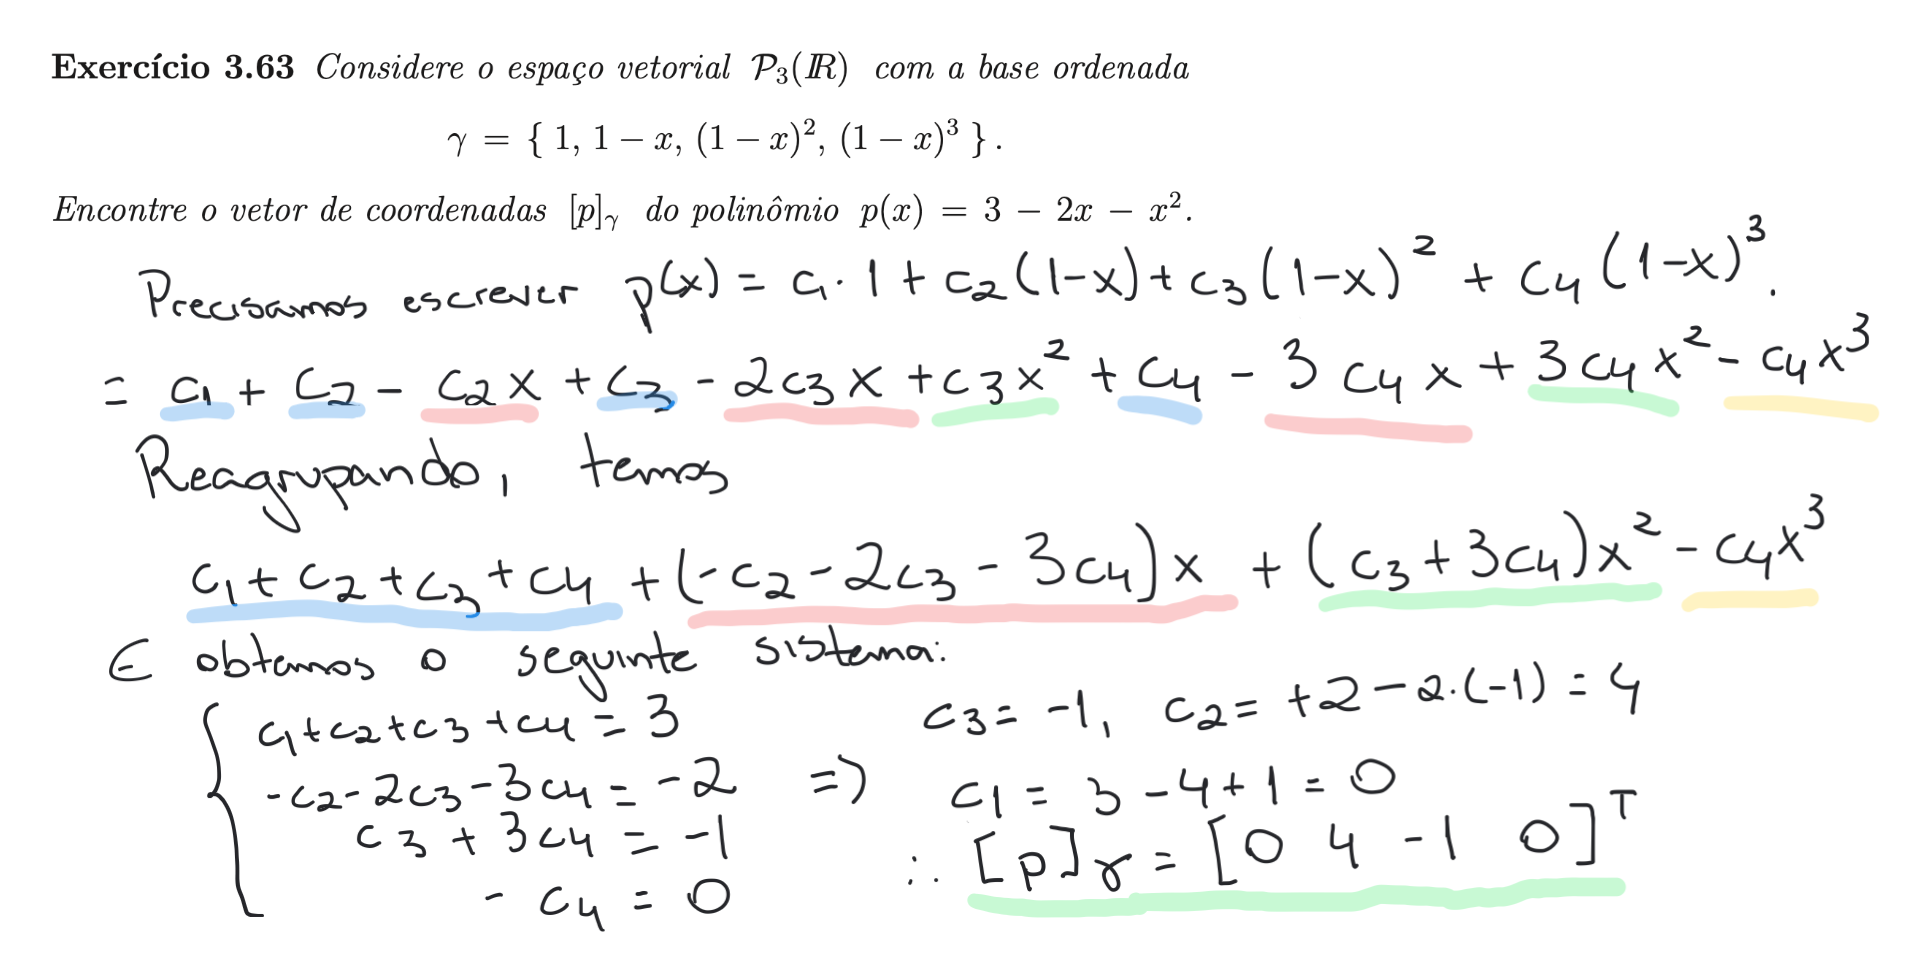 Exercício 3.63 Considere o espaço vetorial 𝒫₃(ℝ) com a base ordenada
γ = { 1, 1 − x, (1 − x)², (1 − x)³ } .
Encontre o vetor de coordenadas [p]ᵧ do polinômio p(x) = 3 − 2x − x².
Precisamos escrever p(x) = c₁·1 + c₂(1-x) + c₃(1-x)² + c₄(1-x)³.
= c₁ + c₂ - c₂x + c₃ - 2c₃x + c₃x² + c₄ - 3c₄x + 3c₄x² - c₄x³
Reagrupando, temos
c₁ + c₂ + c₃ + c₄ + (-c₂ - 2c₃ - 3c₄)x + (c₃ + 3c₄)x² - c₄x³
E obtemos o seguinte sistema:
{ c₁ + c₂ + c₃ + c₄ = 3
-c₂ - 2c₃ - 3c₄ = -2
c₃ + 3c₄ = -1
- c₄ = 0
=> c₃ = -1, c₂ = +2 - 2·(-1) = 4
c₁ = 3 - 4 + 1 = 0
∴ [p]ᵧ = [0 4 -1 0]ᵀ